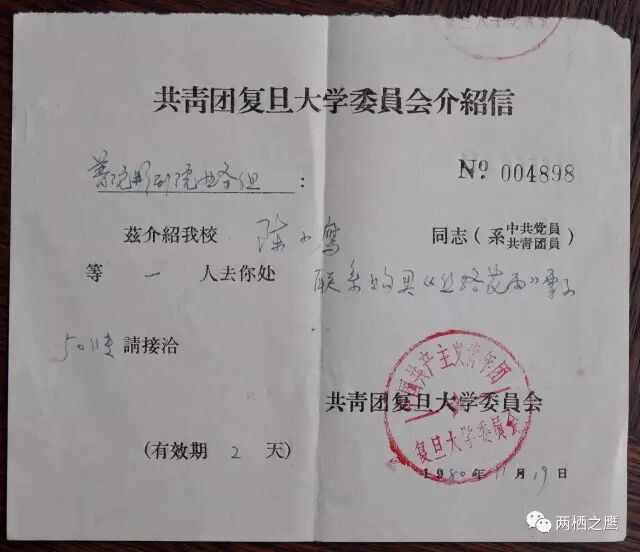 共青团复旦大学委員会介紹信
普陀影剧院业务组：
Nº 004898
茲介紹我校 陈小鹰 同志（系中共党員共青團員）
等 一 人去你处 联系购买《丝路花雨》票子
50张 請接洽
共青团复旦大学委員会
中国共产主义青年团
复旦大学委員会
（有效期 2 天）
1980年11月19日
两栖之鹰